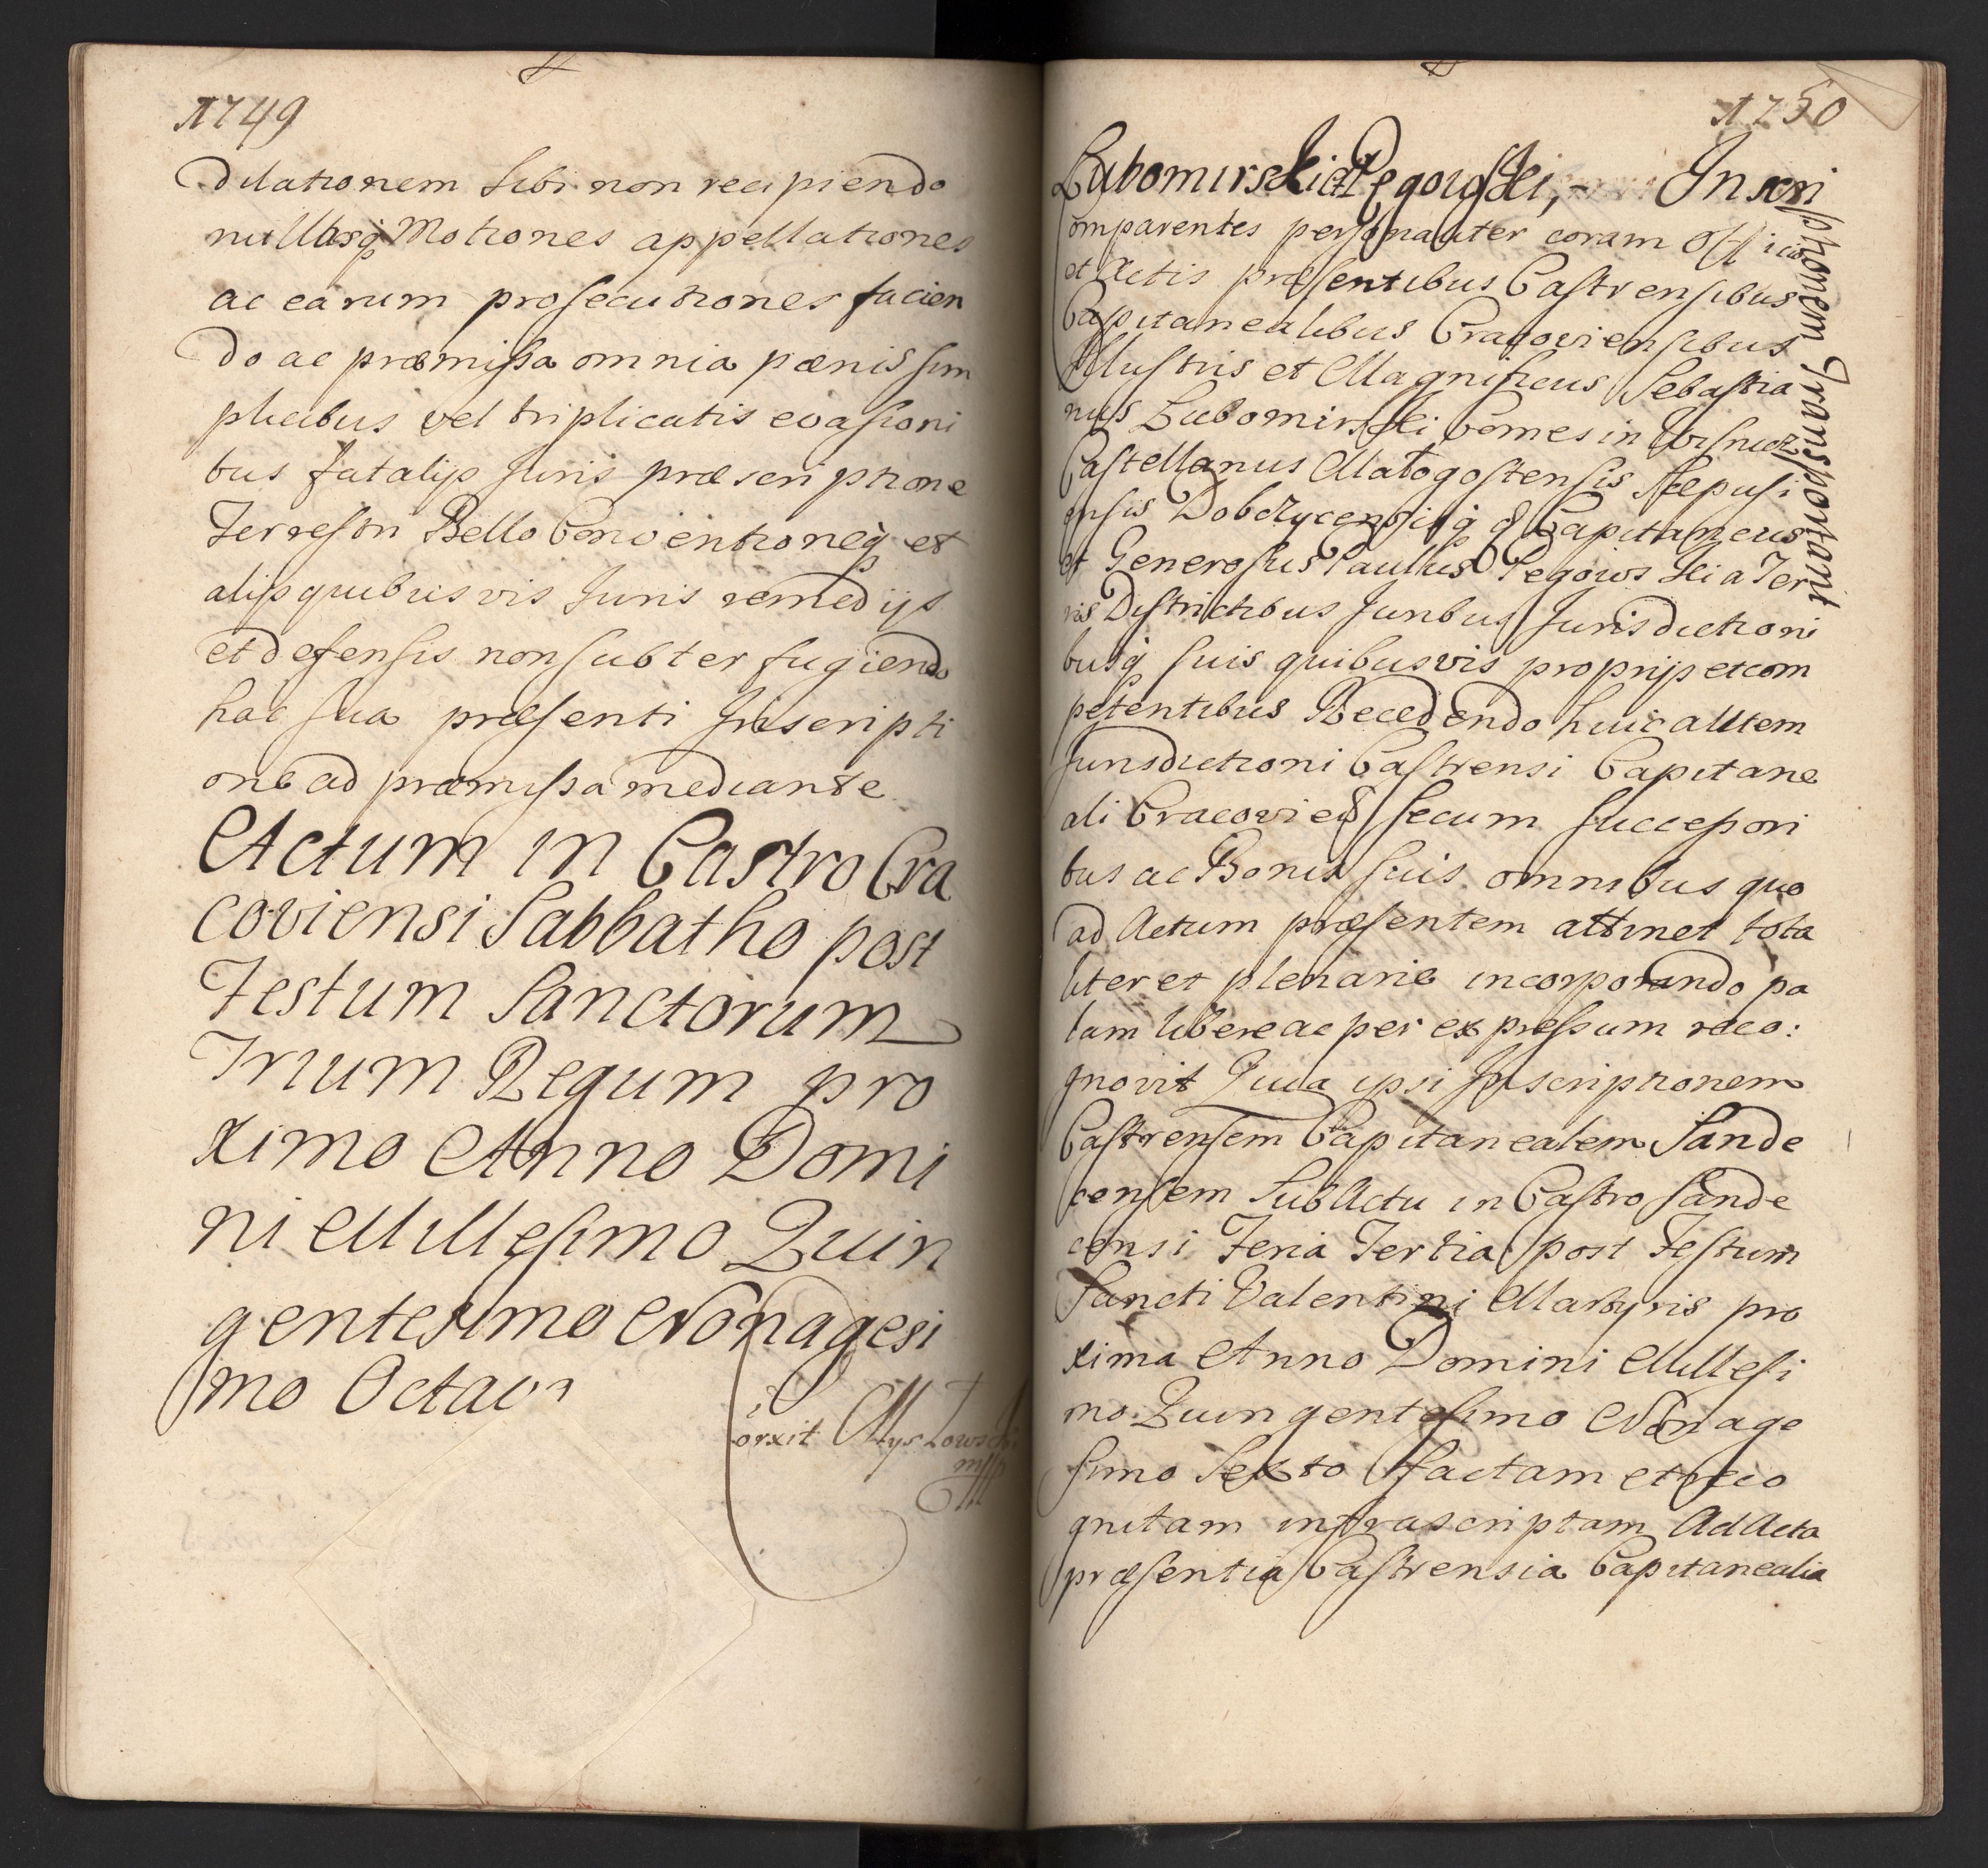 1749
dilationem sibi non recipiendo
nullasq; Motiones appellationes
ac earum prosecutiones facien
do ac præmissa omnia pœnis sim
plicibus vel triplicatis evasioni
bus fatalijs Juris præscriptione
Terresori Bello Conventioneq; et
alijs quibusvis Juris remedijs
et defensis non subterfugiendo
hac sua præsenti Inscripti
one ad præmissa mediante
Actum in Castro Cra
coviensi Sabbatho post
Festum Sanctorum
Trium Regum pro
ximo Anno Domi
ni Millesimo Quin
gentesimo Nonagesi
mo Octavo
orxit Myszkowski
mpp
1750
Lubomirski et Pęgowski, - Inscri
ptionem Transportant
Comparentes personaliter coram Officio
et Actis præsentibus Castrensibus
Capitanealibus Cracoviensibus
Illustris et Magnificus Sebastia
nus Lubomirski Comes in Wisnicz
Castellanus Małogostensis Scepusi
ensis Dobczycensisq; & Capitaneus
et Generosus Paulus Pęgowski a Ter
ris Districtibus Juribus Jurisdictioni
busq; suis quibusvis proprijs et com
petentibus Recedendo huic autem
Jurisdictioni Castrensi Capitane
ali Cracovien secum successori
bus ac Bonis suis omnibus quo
ad Actum præsentem attinet tota
liter et plenarie incorporando pa
lam libere ac per expressum reco:
gnovit Quia ipsi Inscriptionem
Castrensem Capitanealem Sande
censem sub Actu in Castro Sande
censi Feria Tertia post Festum
Sancti Valentini Martyris pro
xima Anno Domini Millesi
mo Quingentesimo Nonage
simo Sexto factam et reco
gnitam infrascriptam Ad Acta
præsentia Castrensia Capitanealia